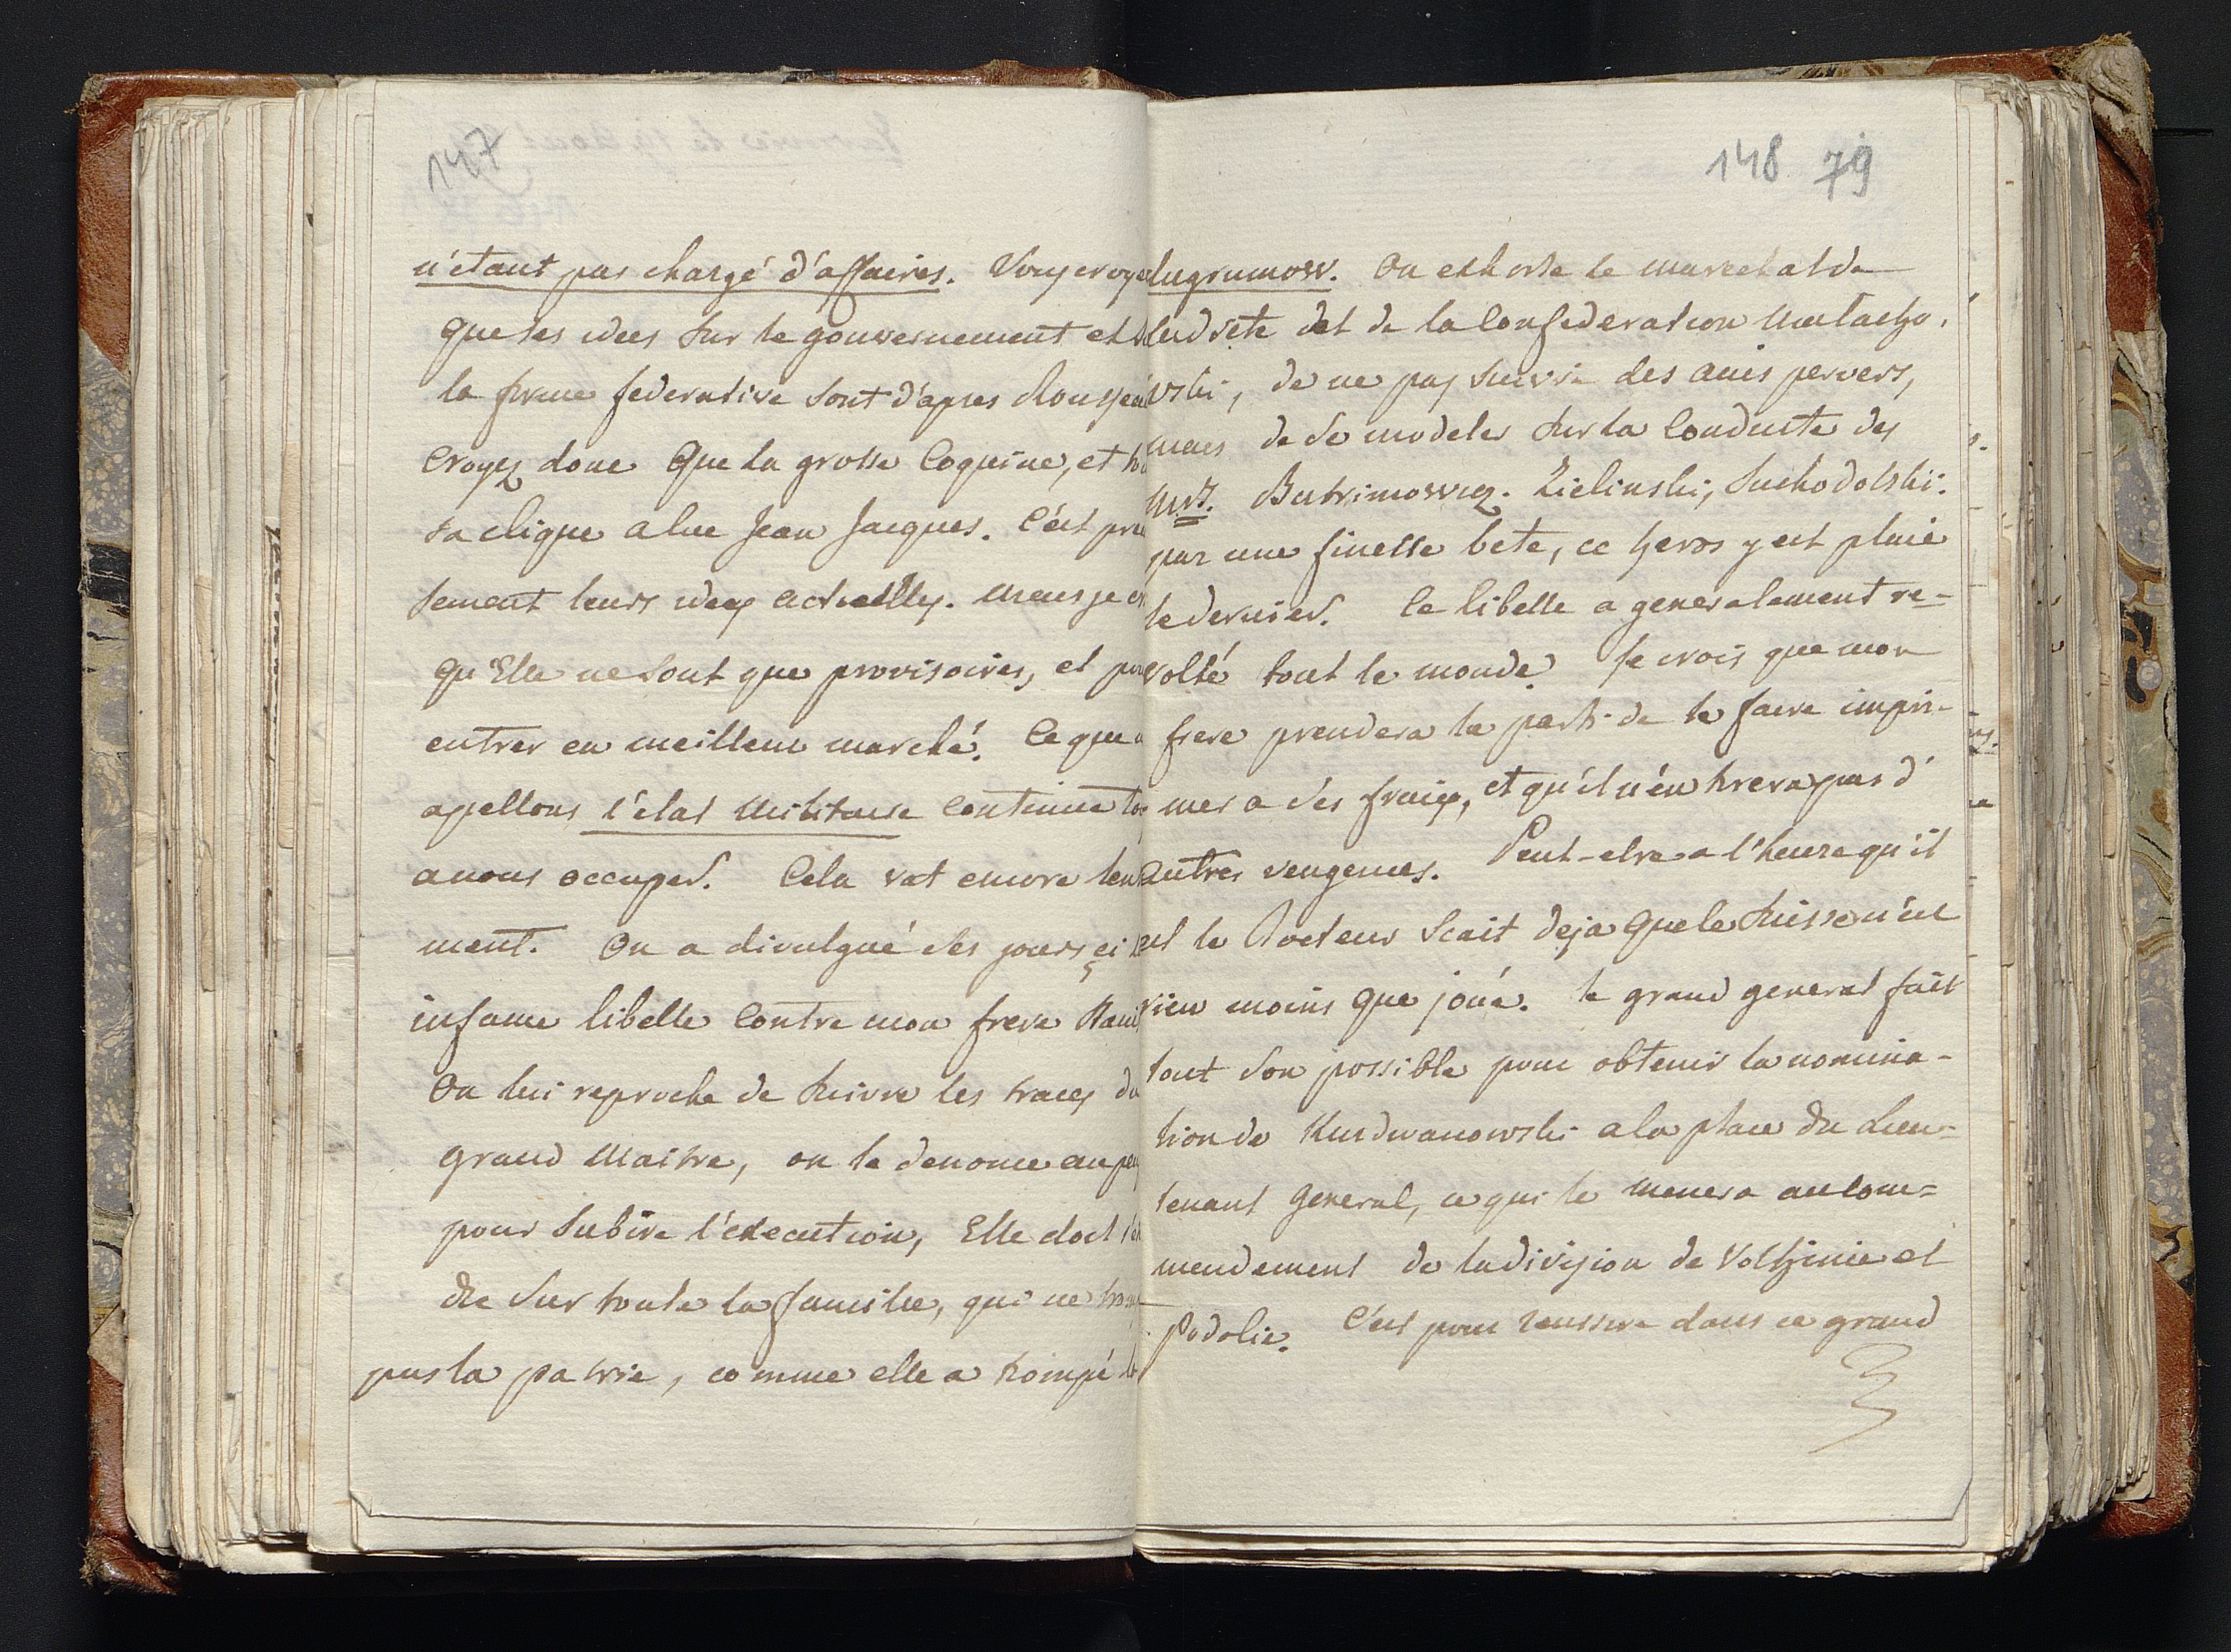 147
n'etant pas chargé d'affaires. Vous croye
que ses idees sur le gouvernement et
la forme federative sont d'apres Rousseau
Croyez donc que la grosse Coquine, et
sa clique a lue Jean Jacques. C'est pre
sement leurs idees actuelles. Mais je
qu'Elle ne sont que provisoires, et
entrer en meilleur marché. Ce que
apellons l'etat Militaire continue
a nous occuper. Cela vat encore
ment. On a divulgué ces jours çi
infame libelle contre mon frere
On lui reproche de suivre les traces du
grand Maitre, on le denonce au
pour subire l'execution, Elle doit
dre sur toute la famille, qui ne
pas la patrie, comme elle a trompé
148 79
On exhorte le marechal de
la diete et de la Confederation Malacho,
wski, de ne pas suivre des avis pervers,
mais de se modeler sur la Conduite des
Mrs. Butrimowicz. Zielinski, Suchodolski.
par une finesse bete, ce heros y est placé
le dernier. Ce libelle a generalement re-
volté tout le monde. Je crois que mon
frere prendera le parti de le faire impri-
mer a ses fraix, et qu'il n'en tirera pas d'
autres vengences. Peut-etre a l'heure qu'il
est le Docteur scait deja que le Suisse n'est
rien moins que joué. Le grand general fait
tout son possible pour obtenir la nomina-
tion de Kurdwanowski a la place du Lieu=
tenant General, ce qui le menera au com=
mendement de la division de Volhinie et
Podolie. C'est pour reussire dans ce grand